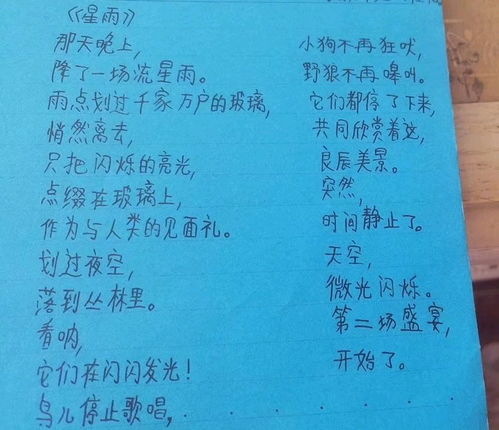 《星雨》
那天晚上，
降了一场流星雨。
雨点划过千家万户的玻璃，
悄然离去，
只把闪烁的亮光，
点缀在玻璃上，
作为与人类的见面礼。
划过夜空，
落到丛林里。
看呐，
它们在闪闪发光！
鸟儿停止歌唱，
小狗不再狂吠，
野狼不再嗥叫。
它们都停了下来，
共同欣赏着这，
良辰美景。
突然，
时间静止了。
天空，
微光闪烁。
第二场盛宴，
开始了。